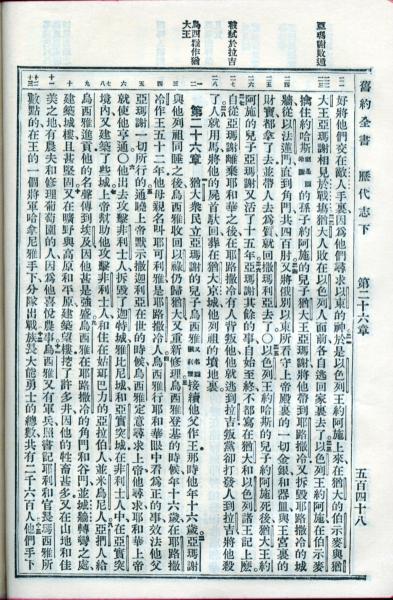 舊約全書 歷代志下 第二十六章 五百四十八
亞瑪謝敗遁
被弒於拉吉
烏西雅作猶
大王
好將他們交在敵人手裏因為他們尋求以東的神於是以色列王約阿施上來在猶大的伯示麥與猶
大王亞瑪謝相見於戰場猶大人敗在以色列人面前各自逃回家裏去了以色列王約阿施在伯示麥
擒住約哈斯的孫子約阿施的兒子猶大王亞瑪謝將他帶到耶路撒冷又拆毀耶路撒冷的城
牆從以法蓮門直到角門共四百肘又將俄別以東所看守上帝殿裏的一切金銀和器皿與王宮裏的
財寶都拿了去並帶人去為質就回撒瑪利亞去了○以色列王約哈斯的兒子約阿施死後猶大王約
阿施的兒子亞瑪謝又活了十五年亞瑪謝其餘的事自始至終不都寫在猶大和以色列諸王記上麼
自從亞瑪謝離棄耶和華之後在耶路撒冷有人背叛他他就逃到拉吉叛黨卻打發人到拉吉將他殺
了人就用馬將他的屍首馱回葬在猶大京城他列祖的墳地裏
第二十六章 猶大眾民立亞瑪謝的兒子烏西雅接續他父作王那時他年十六歲亞瑪謝
與他列祖同睡之後烏西雅收回以祿仍歸猶大又重新修理烏西雅登基的時候年十六歲在耶路撒
冷作王五十二年他母親名叫耶可利雅是耶路撒冷人烏西雅行耶和華眼中看為正的事效法他父
亞瑪謝一切所行的通曉上帝默示撒迦利亞在世的時候烏西雅定意尋求上帝他尋求耶和華上帝
就使他亨通○他出去攻擊非利士人拆毀了迦特城雅比尼城和亞實突城在非利士人中在亞實突
境內又建築了些城上帝幫助他攻擊非利士人和住在姑珥巴力的亞拉伯人並米烏尼人亞捫人給
烏西雅進貢他的名聲傳到埃及因他甚是強盛烏西雅在耶路撒冷的角門和谷門並城牆轉彎之處
建築城樓且甚堅固又在曠野與高原和平原建築望樓挖了許多井因他的牲畜甚多又在山地和佳
美之地有農夫和修理葡萄園的人因為他喜悅農事烏西雅又有軍兵照書記耶利和官長瑪西雅所
數點的在王的一個將軍哈拿尼雅手下分隊出戰族長大能勇士的總數共有二千六百人他們手下